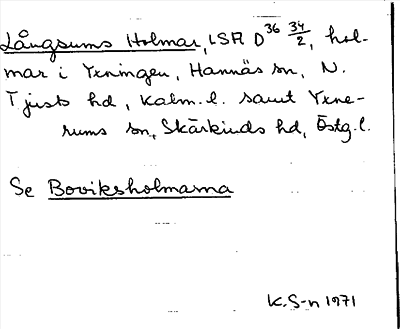 Långsums Holmar, LSA D36 34/2, hol-
mar i Yxningen, Hannäs sn, N.
Tjusts hd, Kalm. l. samt Yxne-
rums sn, Skärkinds hd, Östg. l.
Se Boviksholmarna
K. S-n 1971